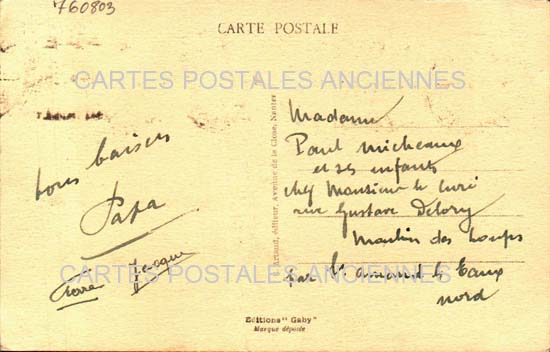 760803
CARTE POSTALE
CARTES POSTALES ANCIENNES
bons baisers
Papa
Jacques
Madame
Paul Micheaux
et ses enfants
chez Monsieur le Curé
rue Gustave Delory
Moulin des Loups
par St amand les Eaux
nord
Artaud, éditeur, Avenue de la Close, Nantes
CARTES POSTALES ANCIENNES
Editions "Gaby"
Marque déposée